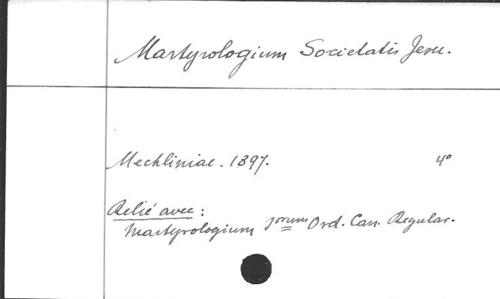 Martyrologium Societatis Jesu.
Mechliniae. 1897. 4°
Relié avec:
Martyrologium Ord. Can. Regular.